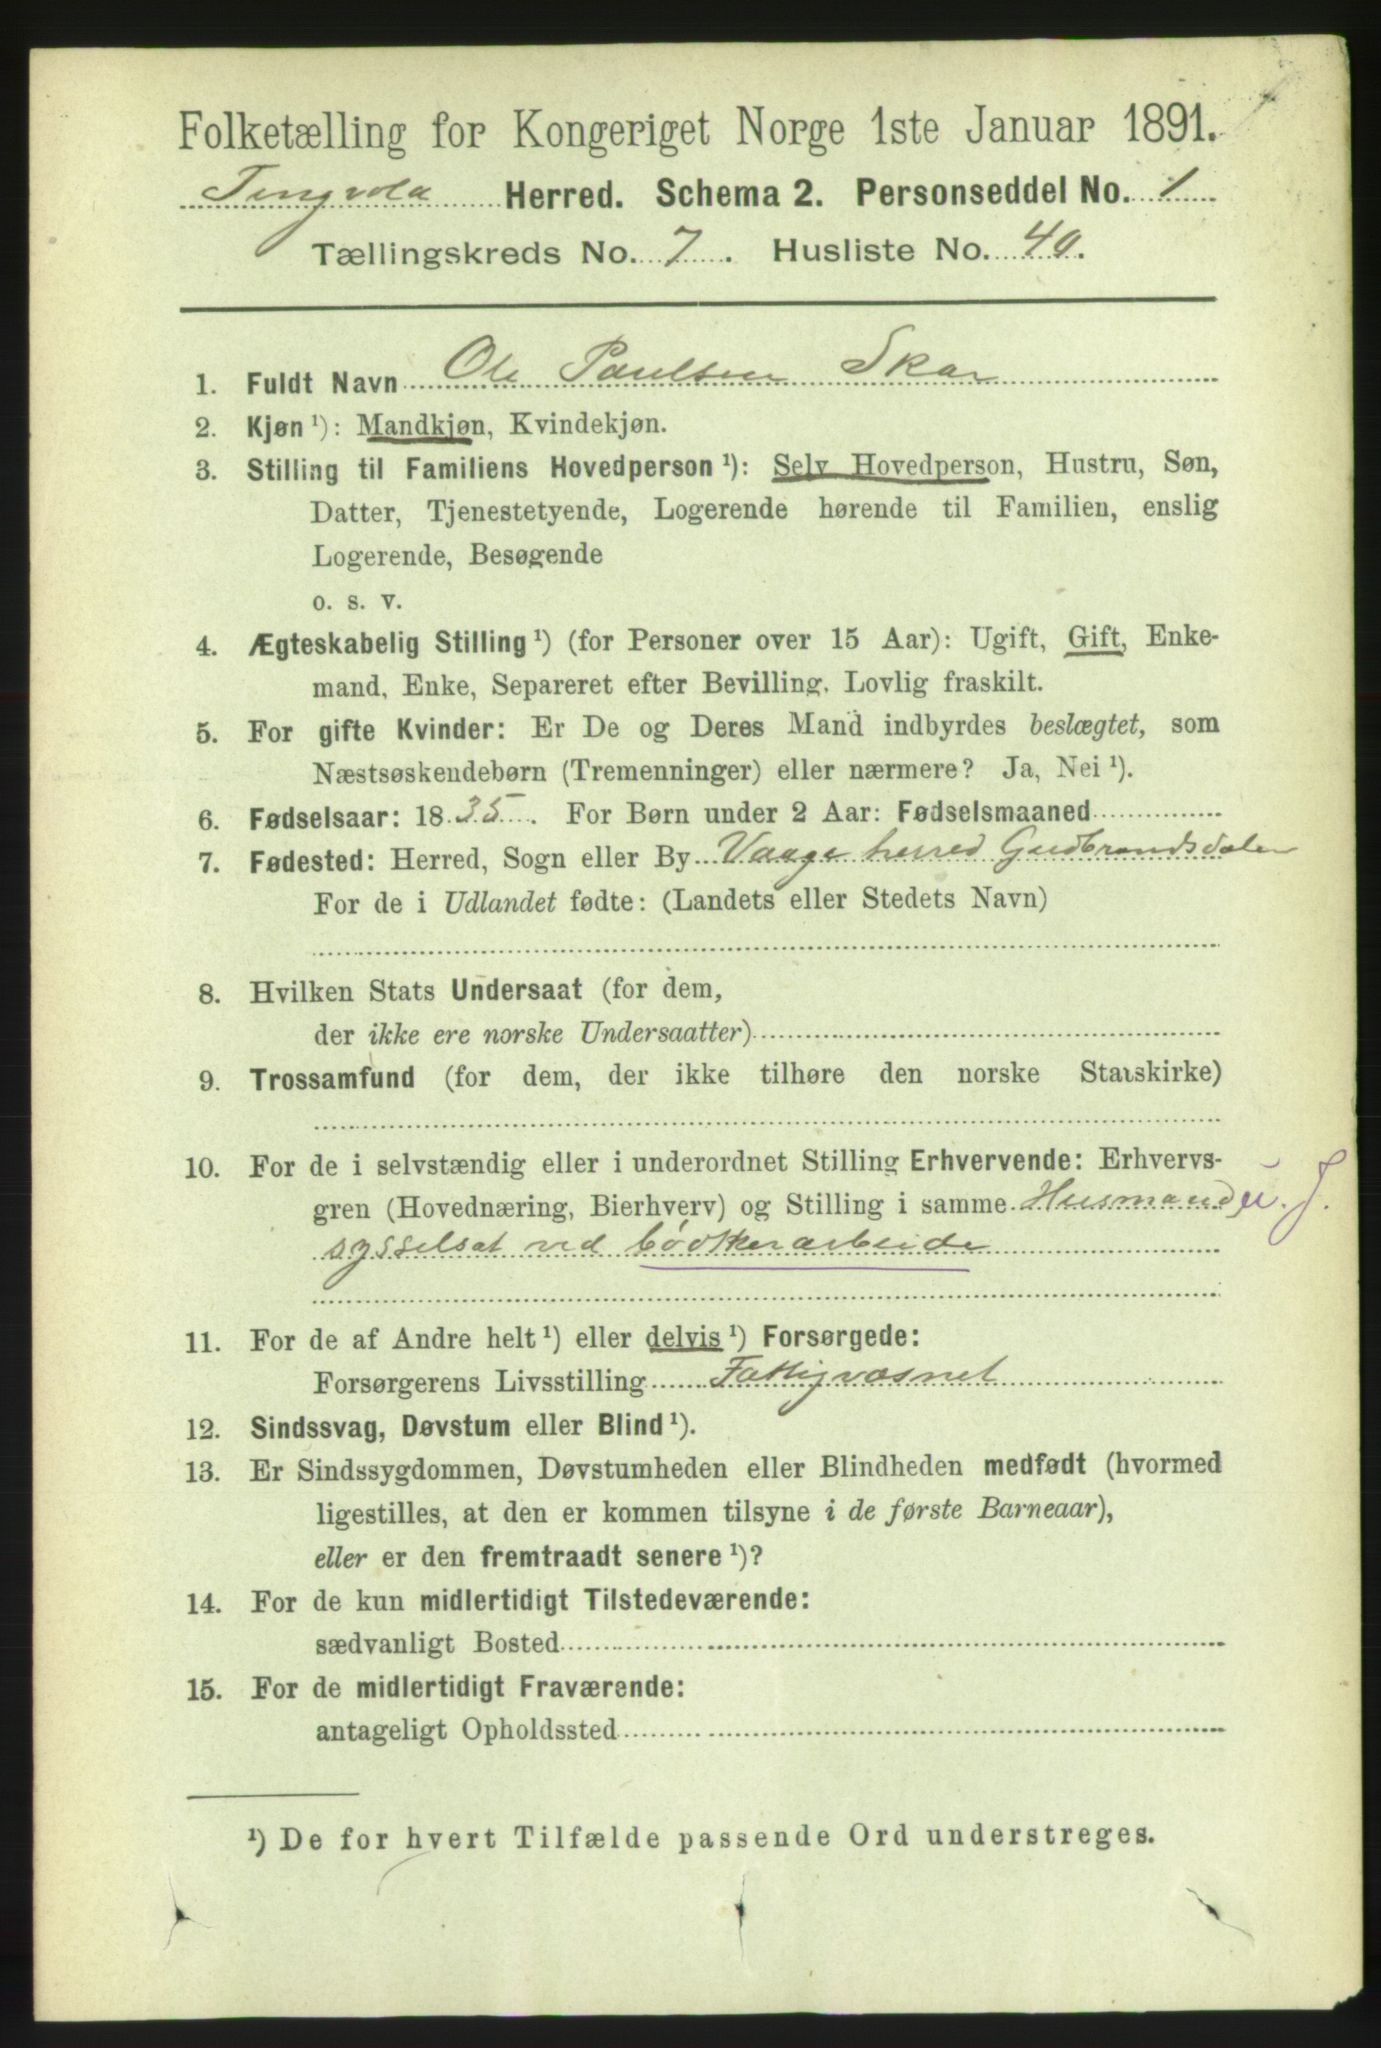 Folketælling for Kongeriget Norge 1ste Januar 1891.
Tingvold Herred. Schema 2. Personseddel No. 1
Tællingskreds No. 7. Husliste No. 40.
1. Fuldt Navn Ole Paulsen Skar
2. Kjøn ¹): Mandkjøn, Kvindekjøn.
3. Stilling til Familiens Hovedperson ¹): Selv Hovedperson, Hustru, Søn,
Datter, Tjenestetyende, Logerende hørende til Familien, enslig
Logerende, Besøgende
o. s. v.
4. Ægteskabelig Stilling ¹) (for Personer over 15 Aar): Ugift, Gift, Enke-
mand, Enke, Separeret efter Bevilling. Lovlig fraskilt.
5. For gifte Kvinder: Er De og Deres Mand indbyrdes beslægtet, som
Næstsøskendebørn (Tremenninger) eller nærmere? Ja, Nei ¹).
6. Fødselsaar: 1835. For Børn under 2 Aar: Fødselsmaaned
7. Fødested: Herred, Sogn eller By Vaage herred Gudbrandsdalen
For de i Udlandet fødte: (Landets eller Stedets Navn)
8. Hvilken Stats Undersaat (for dem,
der ikke ere norske Undersaatter)
9. Trossamfund (for dem, der ikke tilhøre den norske Statskirke)
10. For de i selvstændig eller i underordnet Stilling Erhvervende: Erhvervs-
gren (Hovednæring, Bierhverv) og Stilling i samme Husmand u. J.
sysselsat ved bødkerarbeide
11. For de af Andre helt ¹) eller delvis ¹) Forsørgede:
Forsørgerens Livsstilling Fattigvæsnet
12. Sindssvag, Døvstum eller Blind ¹).
13. Er Sindssygdommen, Døvstumheden eller Blindheden medfødt (hvormed
ligestilles, at den er kommen tilsyne i de første Barneaar),
eller er den fremtraadt senere ¹)?
14. For de kun midlertidigt Tilstedeværende:
sædvanligt Bosted
15. For de midlertidigt Fraværende:
antageligt Opholdssted
¹) De for hvert Tilfælde passende Ord understreges.